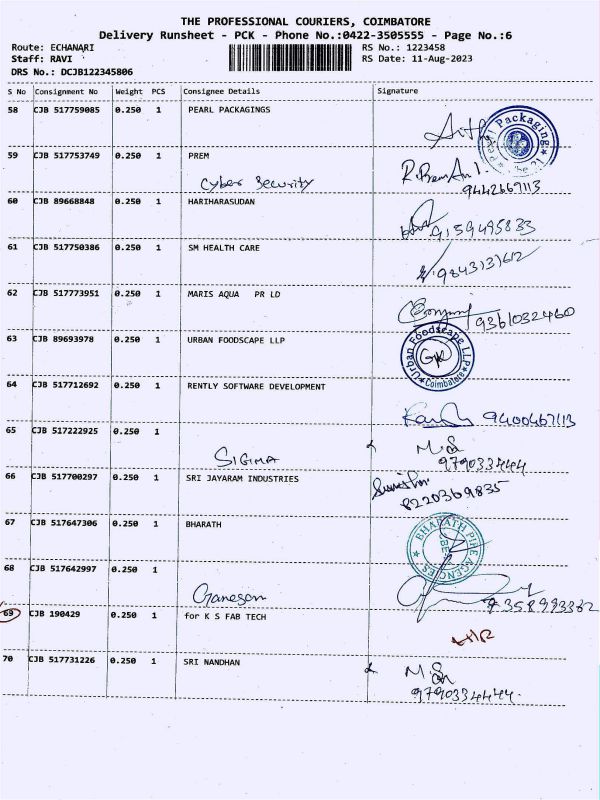 THE PROFESSIONAL COURIERS, COIMBATORE
Delivery Runsheet - PCK - Phone No.:0422-3505555 - Page No.:6
Route: ECHANARI RS No.: 1223458
Staff: RAVI RS Date: 11-Aug-2023
DRS No.: DCJB122345806
S No Consignment No Weight PCS Consignee Details Signature
58 CJB 517759085 0.250 1 PEARL PACKAGINGS
Pearl Packaging
59 CJB 517753749 0.250 1 PREM
Cyber Security 9442667113
60 CJB 89668848 0.250 1 HARIHARASUDAN
9159495833
61 CJB 517750386 0.250 1 SM HEALTH CARE
9843131612
62 CJB 517773951 0.250 1 MARIS AQUA PR LD
9361032460
63 CJB 89693978 0.250 1 URBAN FOODSCAPE LLP
Urban Foodscape LLP
Coimbatore
64 CJB 517712692 0.250 1 RENTLY SOFTWARE DEVELOPMENT
9400467113
65 CJB 517222925 0.250 1
SIGIMA M.S
979033444
66 CJB 517700297 0.250 1 SRI JAYARAM INDUSTRIES
8220369835
67 CJB 517647306 0.250 1 BHARATH
BHARATH PIPE AGENCIES
68 CJB 517642997 0.250 1
Ganesan
69 CJB 190429 0.250 1 for K S FAB TECH
H/R
70 CJB 517731226 0.250 1 SRI NANDHAN M.S
9790334444.